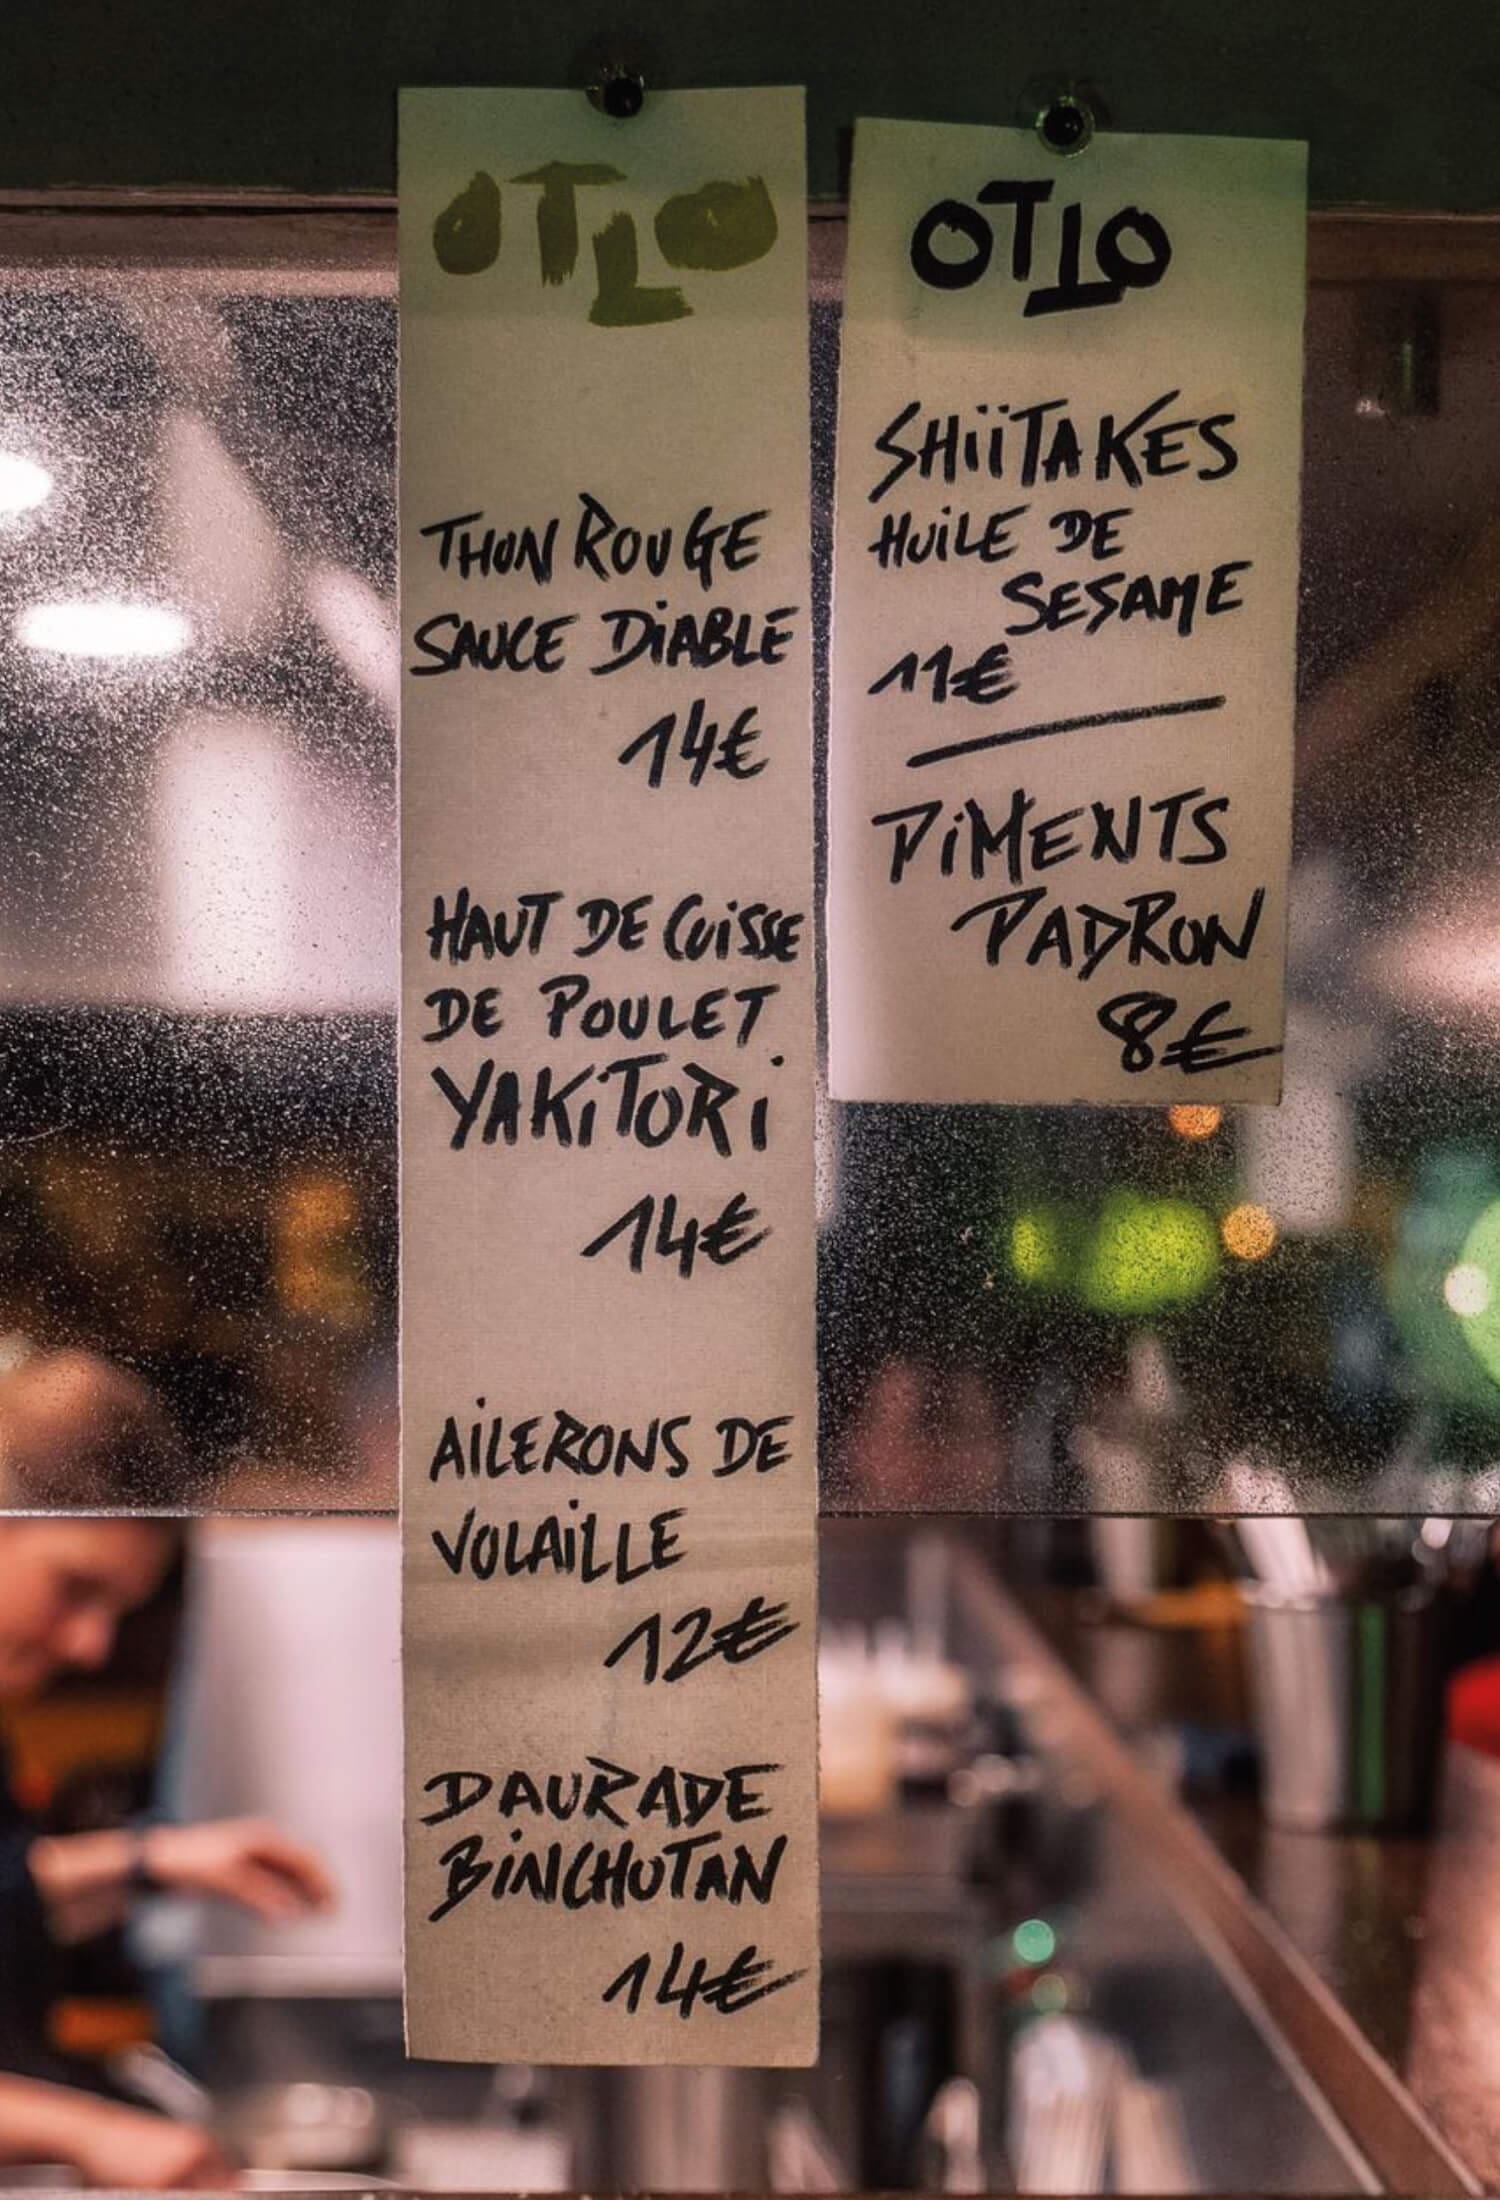 OTTO
THON ROUGE
SAUCE DIABLE
14€
HAUT DE CUISSE
DE POULET
YAKiTORi
14€
AiLERONS DE
VOLAiLLE
12€
DAURADE
BiNCHOTAN
14€
OTTO
SHiiTAKES
HUiLE DE
SESAME
11€
PiMENTS
PADRON
8€